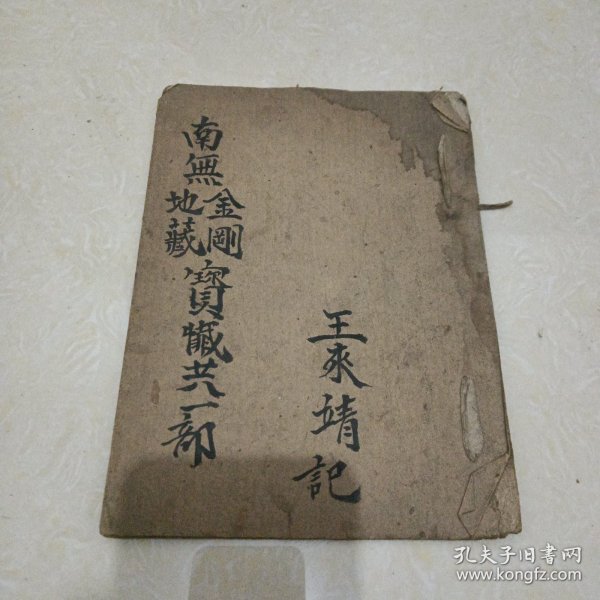 南無金剛地藏寶懺共一部
王來靖記
孔夫子旧书网
www.kongfz.com